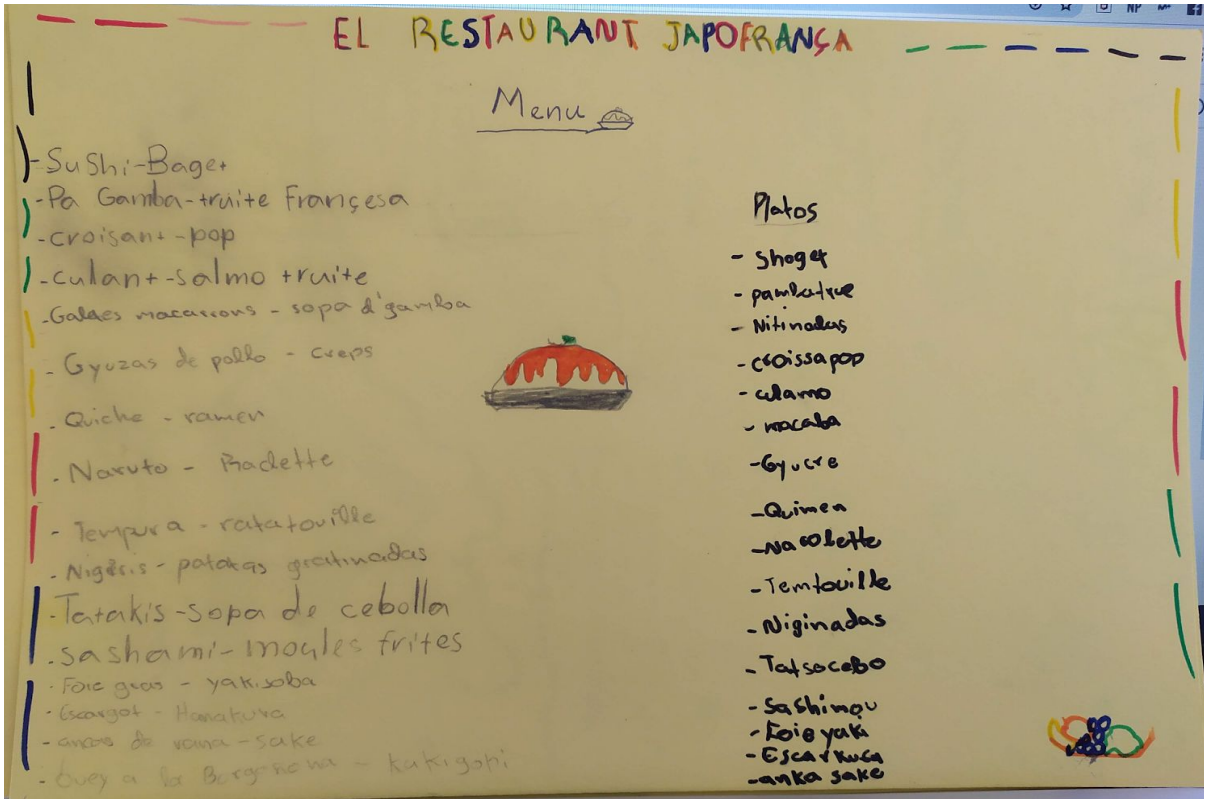 EL RESTAURANT JAPOFRANÇA
Menu
- Sushi-Baget
- Pa Gamba-truite Françesa
- croisant-pop
- culant-salmo truite
- Galetes macarrons - sopa d'gamba
- Gyozas de pollo - creps
- Quiche - ramen
- Naruto - Raclette
- Tempura - ratatouille
- Nigiris - patatas gratinadas
- Tatakis - sopa de cebolla
- sashami - moules frites
- Foie gras - yakisoba
- Escargot - Hanakura
- ancas de rana - sake
- buey a la Borgonona - kakigori
Platos
- Shoget
- pambatrue
- Nitinadas
- croissapop
- culamo
- macaba
- Gyucre
- Quimen
- Nacolette
- Temtouille
- Niginadas
- Tatsocebo
- Sashimou
- Foie yaki
- Escarkuca
- anka sake